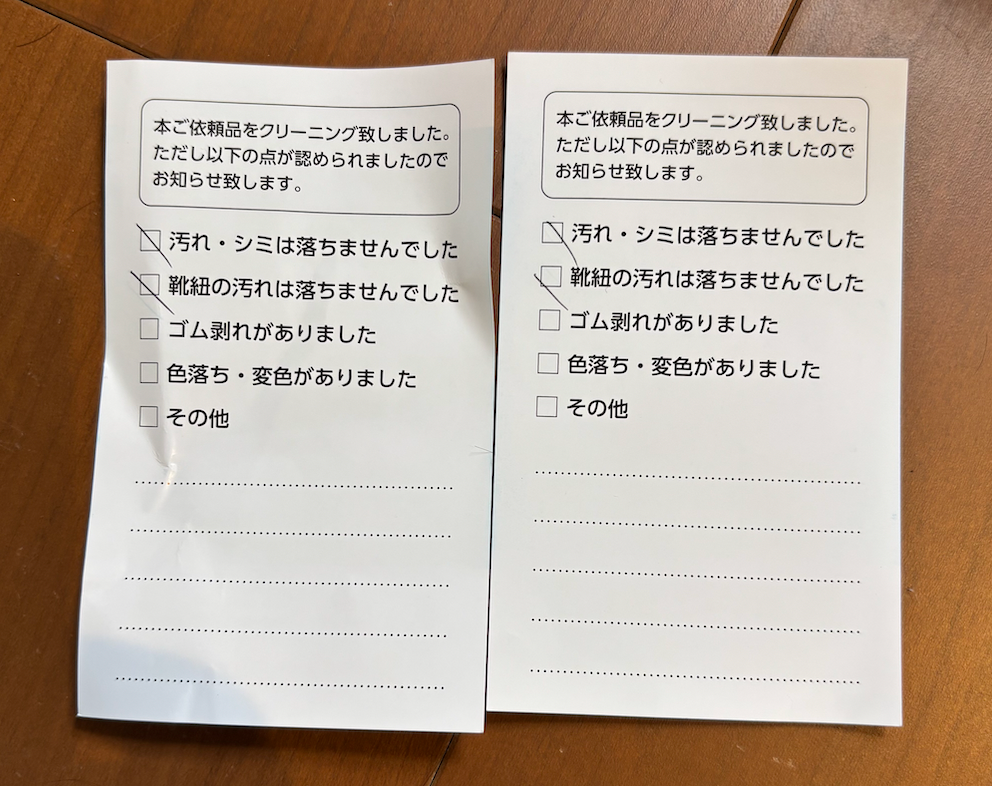 本ご依頼品をクリーニング致しました。
ただし以下の点が認められましたので
お知らせ致します。
汚れ・シミは落ちませんでした
靴紐の汚れは落ちませんでした
ゴム剥れがありました
色落ち・変色がありました
その他
本ご依頼品をクリーニング致しました。
ただし以下の点が認められましたので
お知らせ致します。
汚れ・シミは落ちませんでした
靴紐の汚れは落ちませんでした
ゴム剥れがありました
色落ち・変色がありました
その他